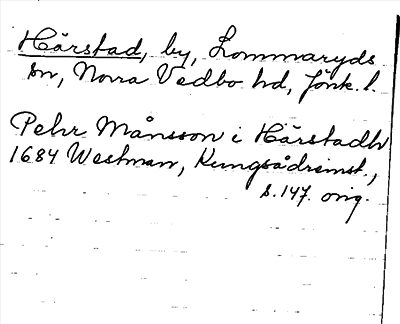 Hårstad, by, Lommaryds
sn, Norra Vedbo hd, Jönk. l.
Pehr Månsson i Hårstadh
1684 Westman, Kungsådreinst.,
s. 147. orig.